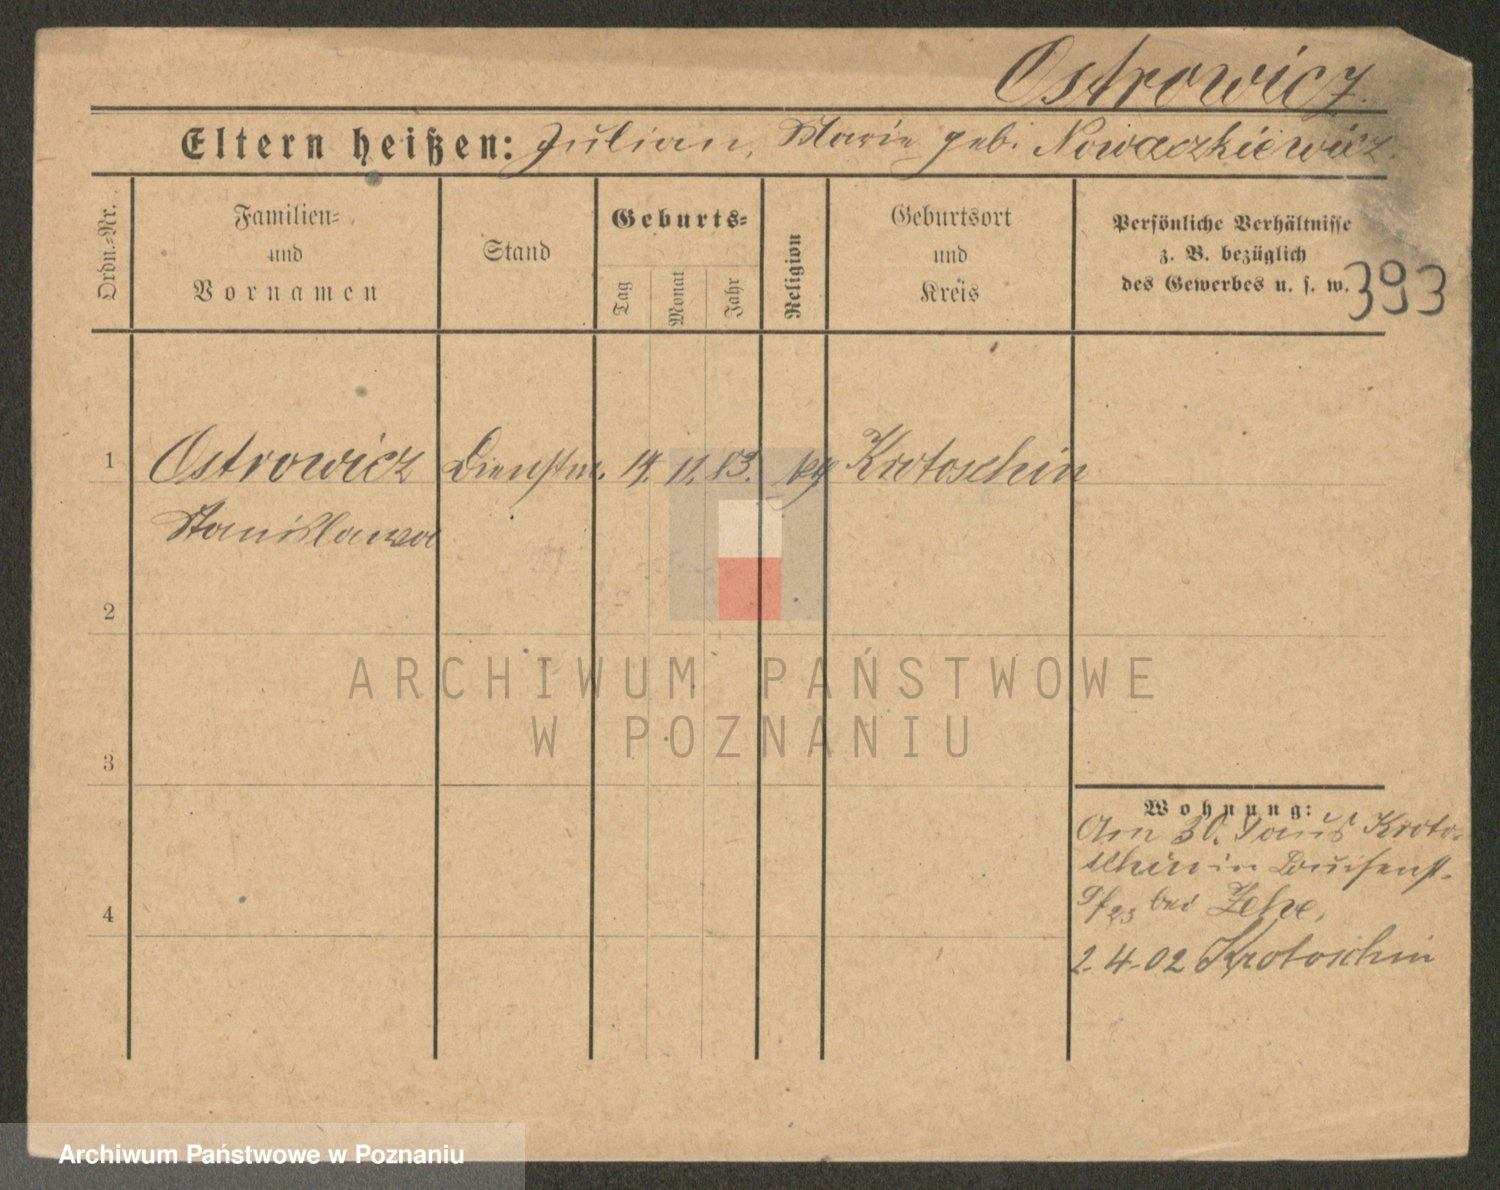 Ostrowicz.
Eltern heißen: Julian, Marie geb. Nowaczkiewicz.
Ordn.=Nr.
Familien=
und
Vornamen
Stand
Geburts=
Tag
Monat
Jahr
Religion
Geburtsort
und
Kreis
Persönliche Verhältnisse
z. B. bezüglich
des Gewerbes u. s. w.
393
1 Ostrowicz Dienstm. 14. 11. 83. kg Krotoschin
Stanislawa
2
3
4
ARCHIWUM PAŃSTWOWE
W POZNANIU
Wohnung:
Am 30. aus Kroto-
schin in Luisenst.
bei
2.4.02 Krotoschin
Archiwum Państwowe w Poznaniu